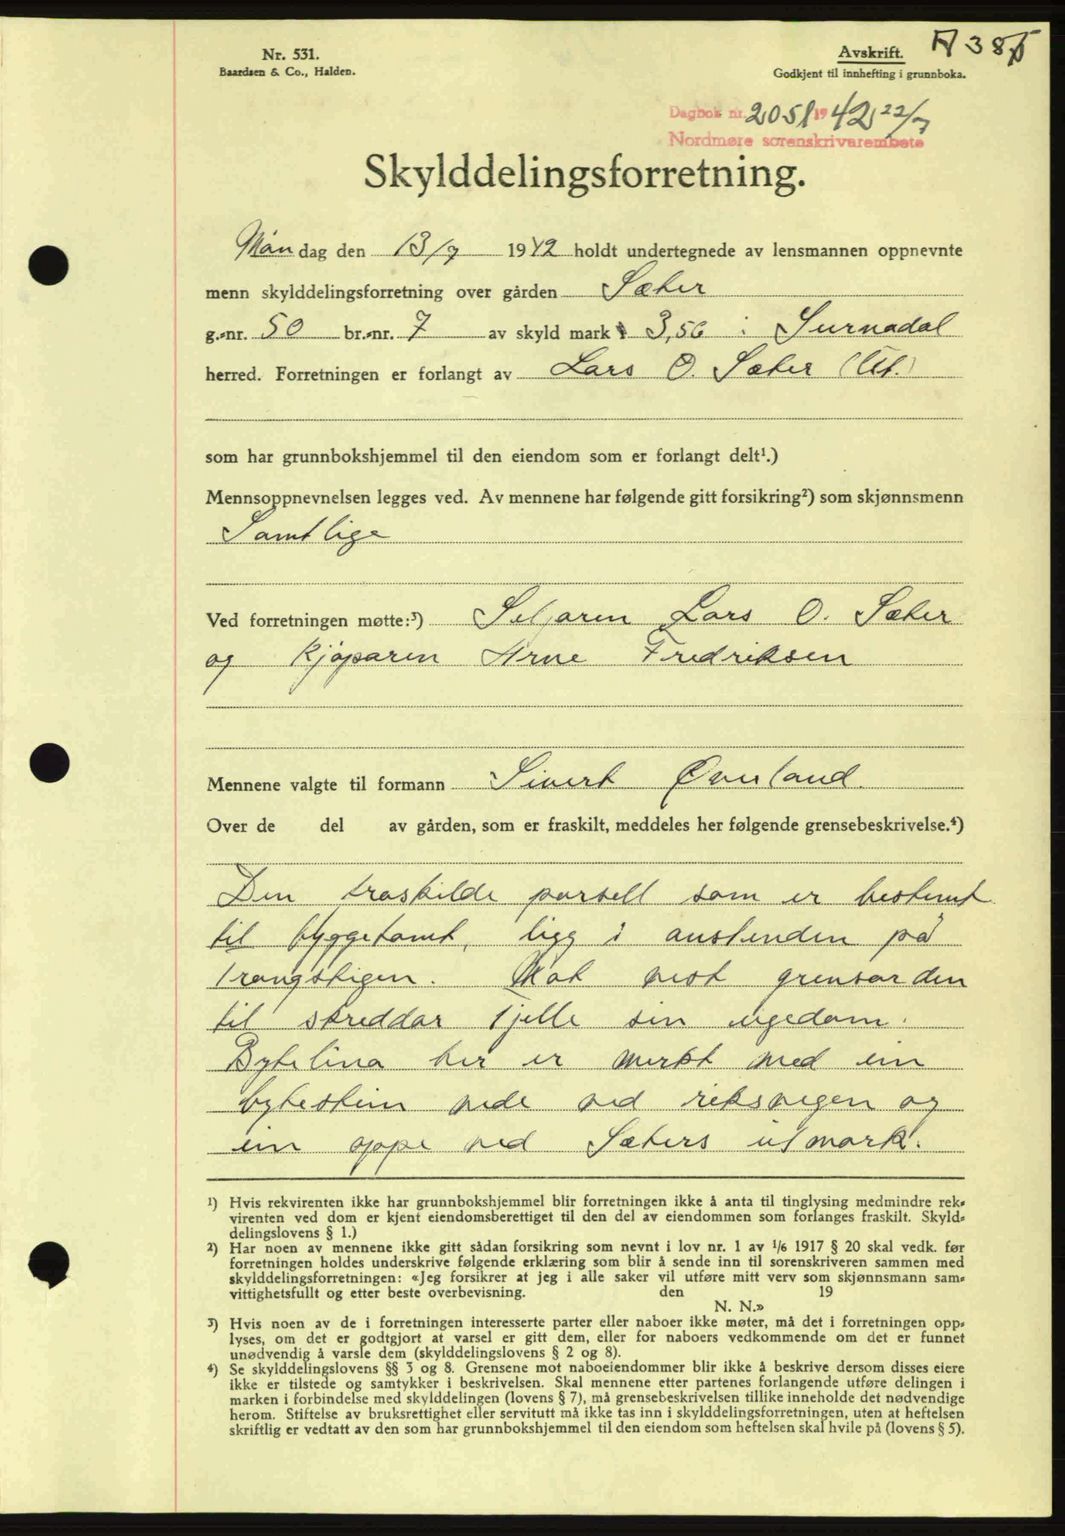 Nr. 531.
Baardsen & Co., Halden.
Avskrift.
Godkjent til innhefting i grunnboka.
A 385
Dagbok nr. 2051 1942 22/7
Nordmøre sorenskrivarembete
Skylddelingsforretning.
Måndag den 13/7 1942 holdt undertegnede av lensmannen oppnevnte
menn skylddelingsforretning over gården Sæter
g.-nr. 50 br.-nr. 7 av skyld mark 3,56 i Surnadal
herred. Forretningen er forlangt av Lars O. Sæter
som har grunnbokshjemmel til den eiendom som er forlangt delt¹.)
Mennsoppnevnelsen legges ved. Av mennene har følgende gitt forsikring²) som skjønnsmenn
Samtlige
Ved forretningen møtte:³) Seljaren Lars O. Sæter
og kjøparen Arne Fredriksen
Mennene valgte til formann Sivert Øverland.
Over de del av gården, som er fraskilt, meddeles her følgende grensebeskrivelse.⁴)
Den fraskilde parsell som er bestemt
til byggetomt, ligg i austenden på
Trangstigen. Mot vest grensar den
til skreddar Tjelle sin eigedom.
Bytelina her er merkt med ein
bytestein nede ved riksvegen og
ein oppe ved Sæters utmark.
¹) Hvis rekvirenten ikke har grunnbokshjemmel blir forretningen ikke å anta til tinglysing medmindre rek-
virenten ved dom er kjent eiendomsberettiget til den del av eiendommen som forlanges fraskilt. Skyld-
delingslovens § 1.)
²) Har noen av mennene ikke gitt sådan forsikring som nevnt i lov nr. 1 av ¹/₆ 1917 § 20 skal vedk. før
forretningen holdes underskrive følgende erklæring som blir å sende inn til sorenskriveren sammen med
skylddelingsforretningen: «Jeg forsikrer at jeg i alle saker vil utføre mitt verv som skjønnsmann sam-
vittighetsfullt og etter beste overbevisning. den 19
N. N.»
³) Hvis noen av de i forretningen interesserte parter eller naboer ikke møter, må det i forretningen opp-
lyses, om det er godtgjort at varsel er gitt dem, eller for naboers vedkommende om det er funnet
unødvendig å varsle dem (skylddelingslovens § 2 og 8).
⁴) Se skylddelingslovens §§ 3 og 8. Grensene mot naboeiendommer blir ikke å beskrive dersom disses eiere
ikke er tilstede og samtykker i beskrivelsen. Skal mennene etter partenes forlangende utføre delingen i
marken i forbindelse med skylddelingen (lovens § 7), må grensebeskrivelsen tillike inneholde det nødvendige
herom. Stiftelse av bruksrettighet eller servitutt må ikke tas inn i skylddelingsforretningen, uten at heftelsen
skriftlig er vedtatt av den som har grunnbokshjemmel til den eiendom som heftelsen skal hvile på (lovens § 5).